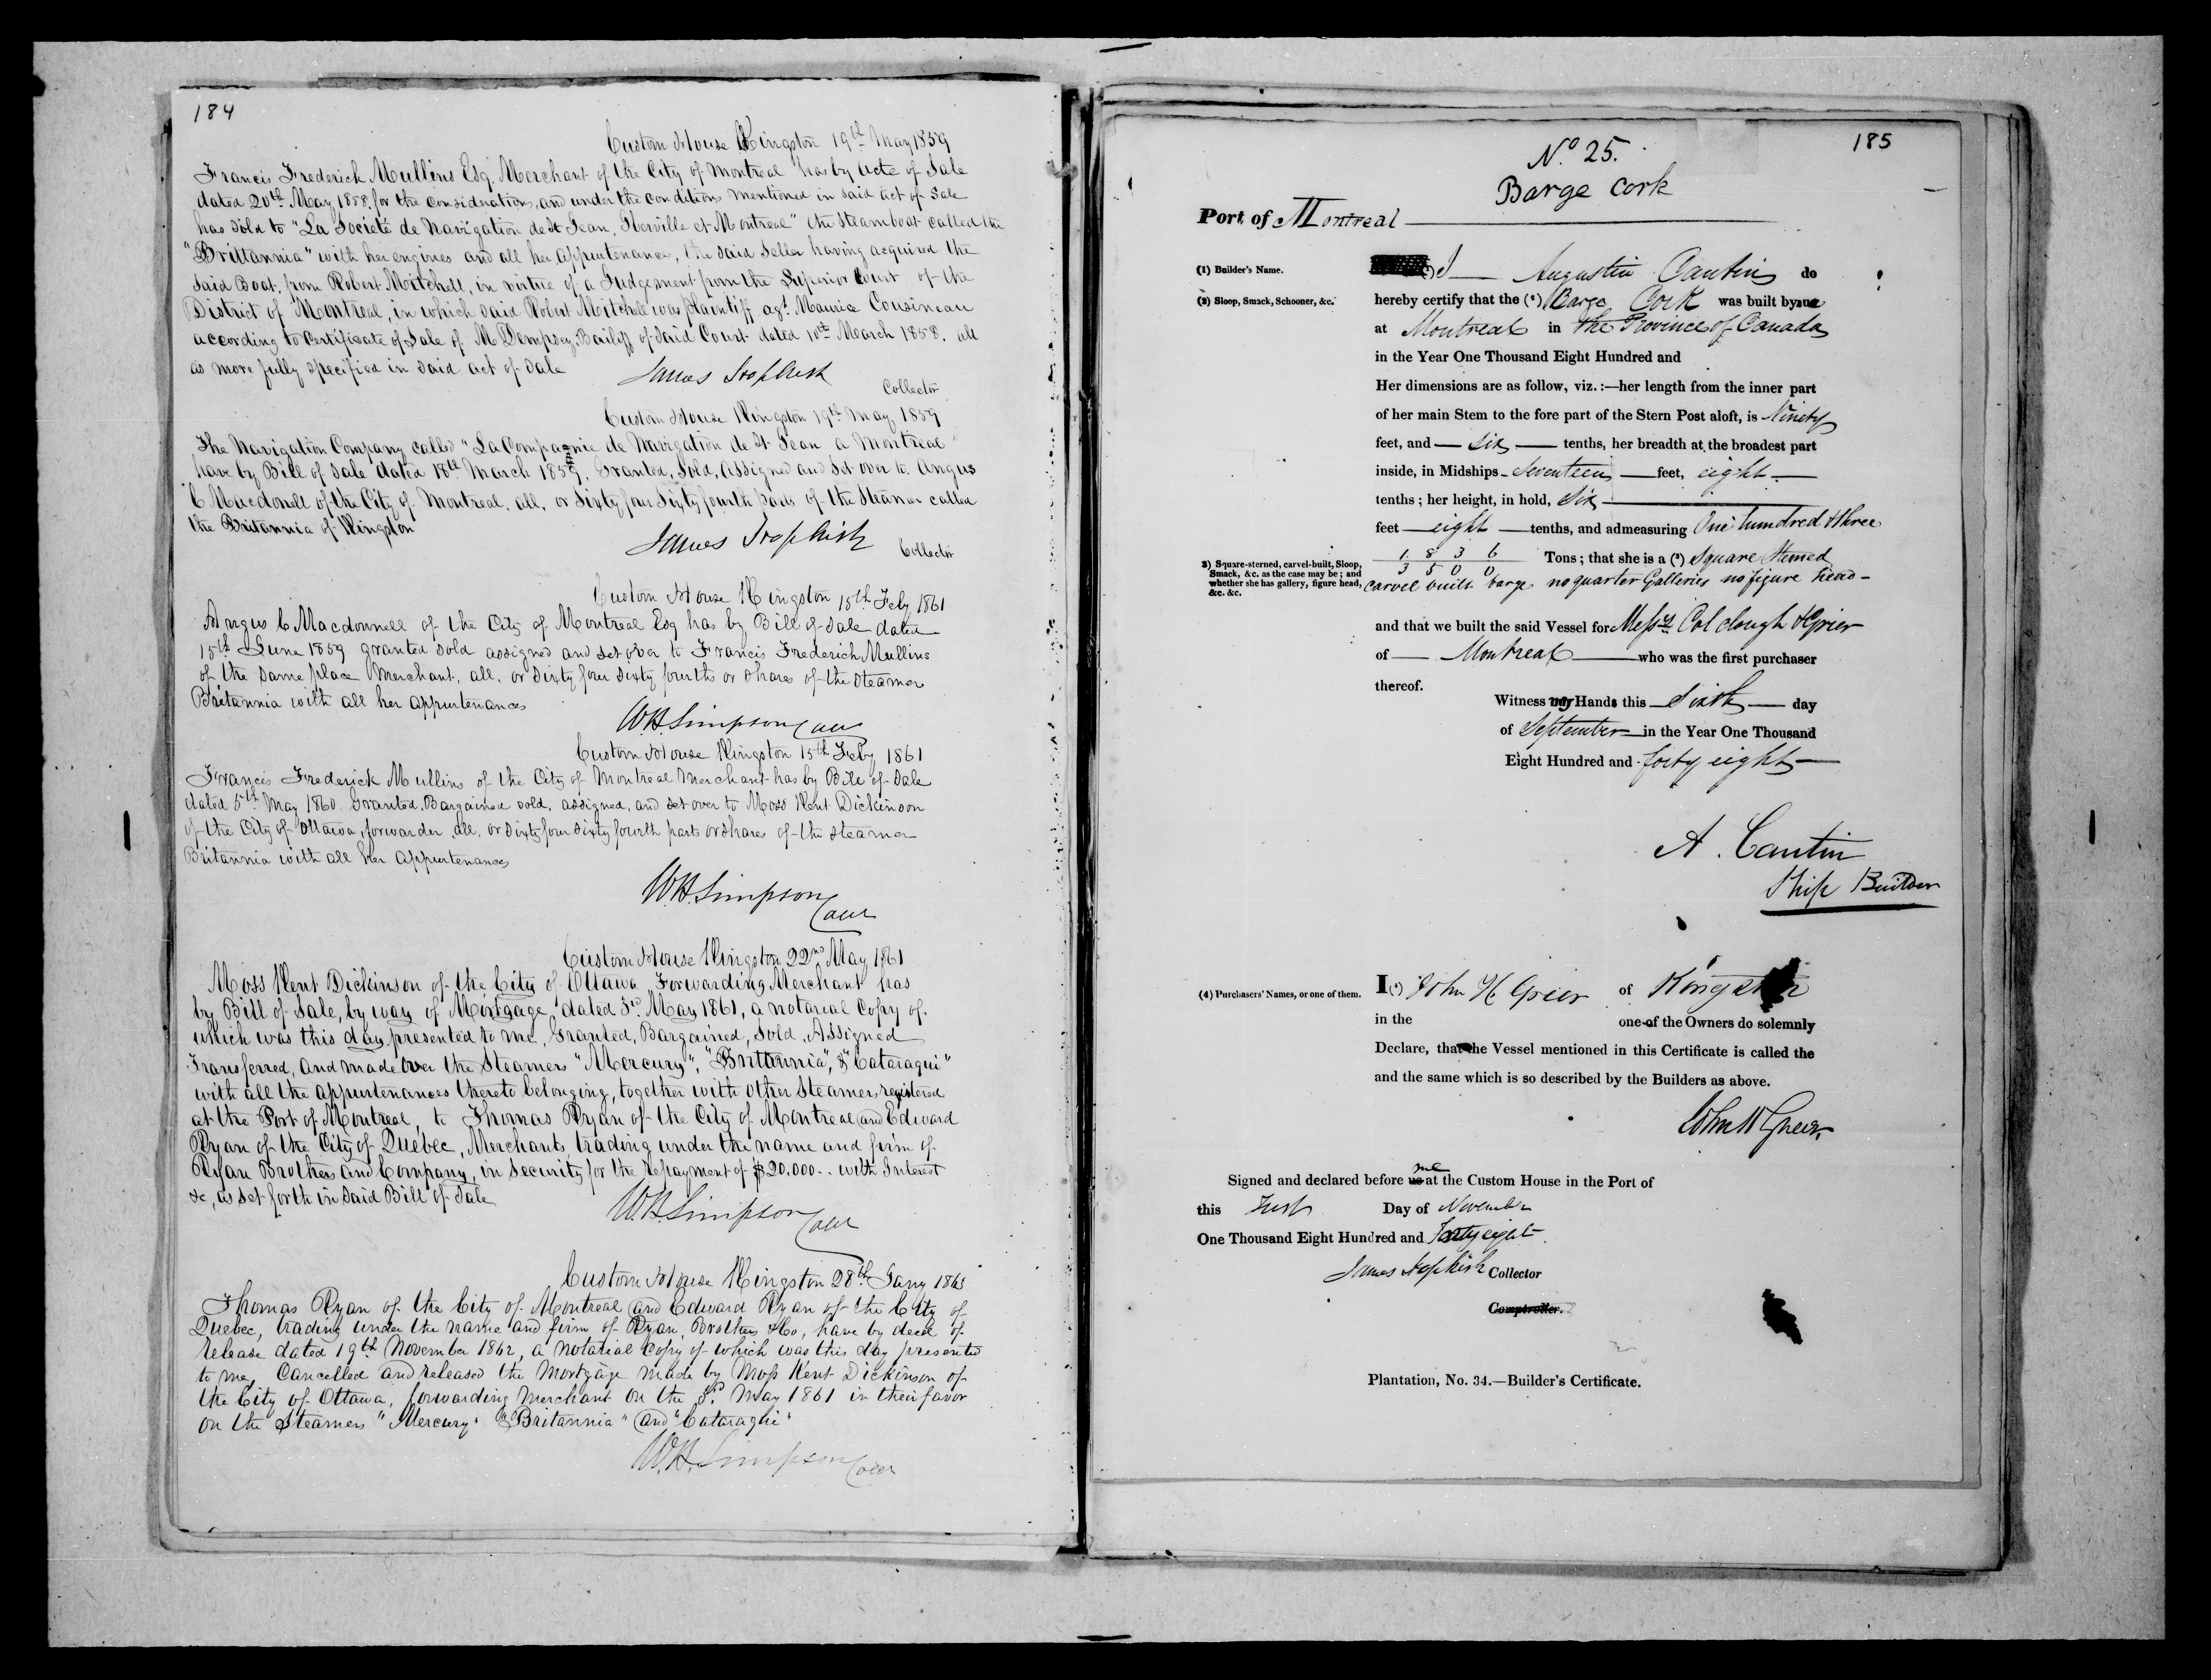 184
Custom House Kingston 19th May 1859
Francis Frederick Mullins Esq. Merchant of the City of Montreal has by acte of Sale
dated 20th May 1858, for the considerations, and under the conditions mentioned in said act of Sale
has sold to "La Societé de Navigation de St Jean, Iberville et Montreal" the steamboat called the
"Brittannia" with her engines and all her appurtenance, the said seller having acquired the
said Boat, from Robert Mitchell, in virtue of a Judgement from the Superior Court of the
District of Montreal, in which said Robert Mitchell was plaintiff agt. Maurice Cousineau
according to Certificate of Sale of M Dempsey, Bailiff of said Court dated 10th March 1858. all
as more fully specified in said act of Sale
James Hopkirk
Collector
Custom House Kingston 19th May 1859
The Navigation Company called "La Compagnie de Navigation de St Jean a Montreal"
have by Bill of Sale dated 18th March 1859, Granted, Sold, Assigned and Set over to Angus
C Macdonell of the City of Montreal, all, or Sixty four Sixty fourth parts of the Steamer called
the Britannia of Kingston
James Hopkirk
Collector
Custom House Kingston 15th Feby 1861
Angus C Macdonnell of the City of Montreal Esq has by Bill of Sale dated
15th June 1859 granted sold assigned and set over to Francis Frederich Mullins
of the same place Merchant, all, or Sixty four Sixty fourths or shares of the Steamer
Britannia with all her appurtenances
W.H. Simpson Coll
Custom House Kingston 15th Feby 1861
Francis Frederick Mullins of the City of Montreal Merchant has by Bill of Sale
dated 5th May 1860. Granted, Bargained sold, assigned, and set over to Moss Kent Dickinson
of the City of Ottawa, forwarder, all, or Sixty four Sixty fourth parts or shares of the Steamer
Britannia with all her appurtenances
W.H. Simpson
Coll
Custom House Kingston 22nd May 1861
Moss Kent Dickinson of the City of Ottawa, Forwarding Merchant has
by Bill of Sale, by way of Mortgage, dated 3d. May 1861, a notarial Copy of
which was this day presented to me, Granted, Bargained, Sold, Assigned
Transferred, and made over the Steamers "Mercury", "Brittannia", & "Cataraqui"
with all the appurtenances thereto belonging, together with other Steamers, registered
at the Port of Montreal, to Thomas Ryan of the City of Montreal and Edward
Ryan of the City of Quebec, Merchants, trading under the name and firm of
Ryan Brothers and Company, in security for the repayment of $20.000.. with Interest
&c, as set forth in said Bill of Sale
W.H. Simpson
Coll
Custom House Kingston 28th Jany 1863
Thomas Ryan of the City of Montreal and Edward Ryan of the City of
Quebec, trading under the name and firm of Ryan, Brothers & Co, have by deed of
release dated 19th November 1862, a notarial Copy of which was this day presented
to me, Cancelled and released the Mortgage made by Moss Kent Dickinson of
the City of Ottawa, forwarding Merchant on the 3rd May 1861 in their favor
on the Steamers "Mercury" "Britannia" and "Cataraqui"
W.H. Simpson Coll
185
No. 25.
Barge Cork
Port of Montreal
(1) Builder's Name.
I Augustin Cantin do
(2) Sloop, Smack, Schooner, &c.
hereby certify that the (2) Barge Cork was built by me
at Montreal in the Province of Canada
in the Year One Thousand Eight Hundred and
Her dimensions are as follow, viz.:—her length from the inner part
of her main Stem to the fore part of the Stern Post aloft, is Ninety
feet, and — six — tenths, her breadth at the broadest part
inside, in Midships - Seventeen — feet, eight —
tenths; her height, in hold, Six
feet — eight — tenths, and admeasuring One hundred & three
1 8 3 6
3 5 0 0
Tons; that she is a (3) Square Sterned
3) Square-sterned, carvel-built, Sloop,
Smack, &c. as the case may be; and
whether she has gallery, figure head,
&c. &c.
carvel built barge no quarter Galleries no figure head -
and that we built the said Vessel for Messrs. Colclough & Grier
of — Montreal — who was the first purchaser
thereof.
Witness my Hands this — Sixth — day
of September in the Year One Thousand
Eight Hundred and forty eight —
A. Cantin
Ship Builder
(4) Purchasers' Names, or one of them.
I (4) John H Grier of Kingston
in the one of the Owners do solemnly
Declare, that the Vessel mentioned in this Certificate is called the
and the same which is so described by the Builders as above.
John H Greer.
me
Signed and declared before us at the Custom House in the Port of
this First Day of November
One Thousand Eight Hundred and Forty eight.
James Hopkirk Collector
Comptroller.
Plantation, No. 34.—Builder's Certificate.